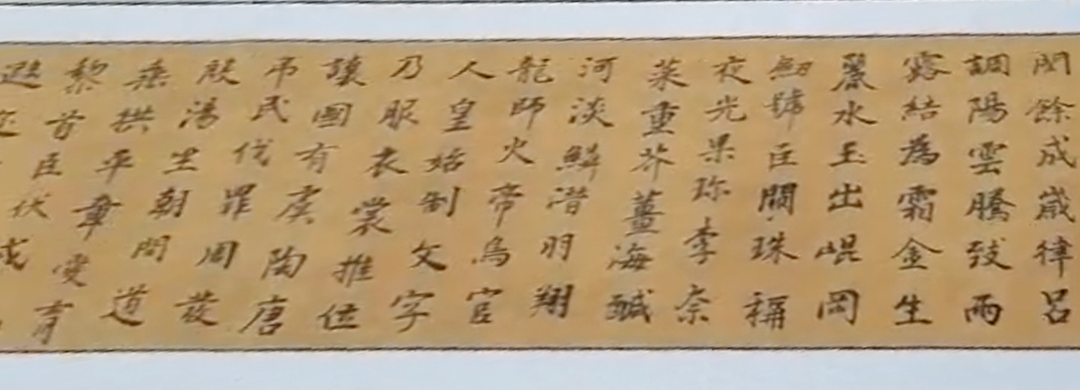 閏餘成歳律呂
調陽雲騰致雨
露結為霜金生
麗水玉出崐岡
劒號巨闕珠稱
夜光果珎李奈
菜重芥薑海鹹
河淡鱗潛羽翔
龍師火帝鳥官
人皇始制文字
乃服衣裳推位
讓國有虞陶唐
弔民伐罪周發
殷湯坐朝問道
垂拱平章愛育
黎首臣伏戎
遐